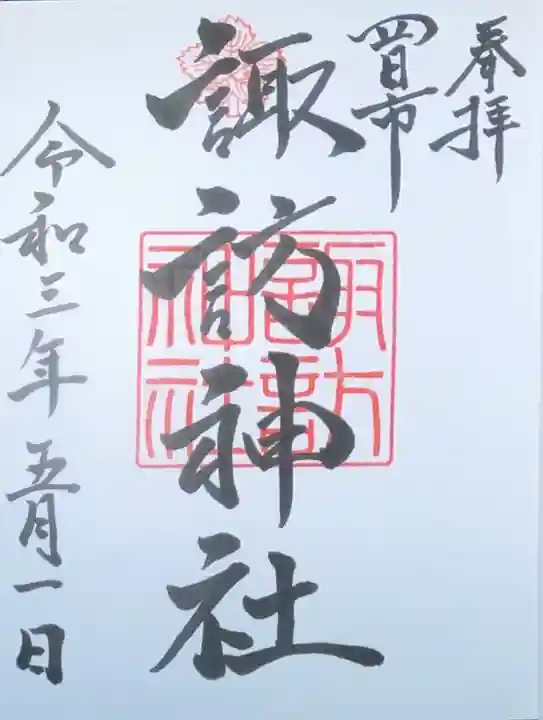 奉拝
四日市
諏訪神社
諏訪神社
令和三年五月一日